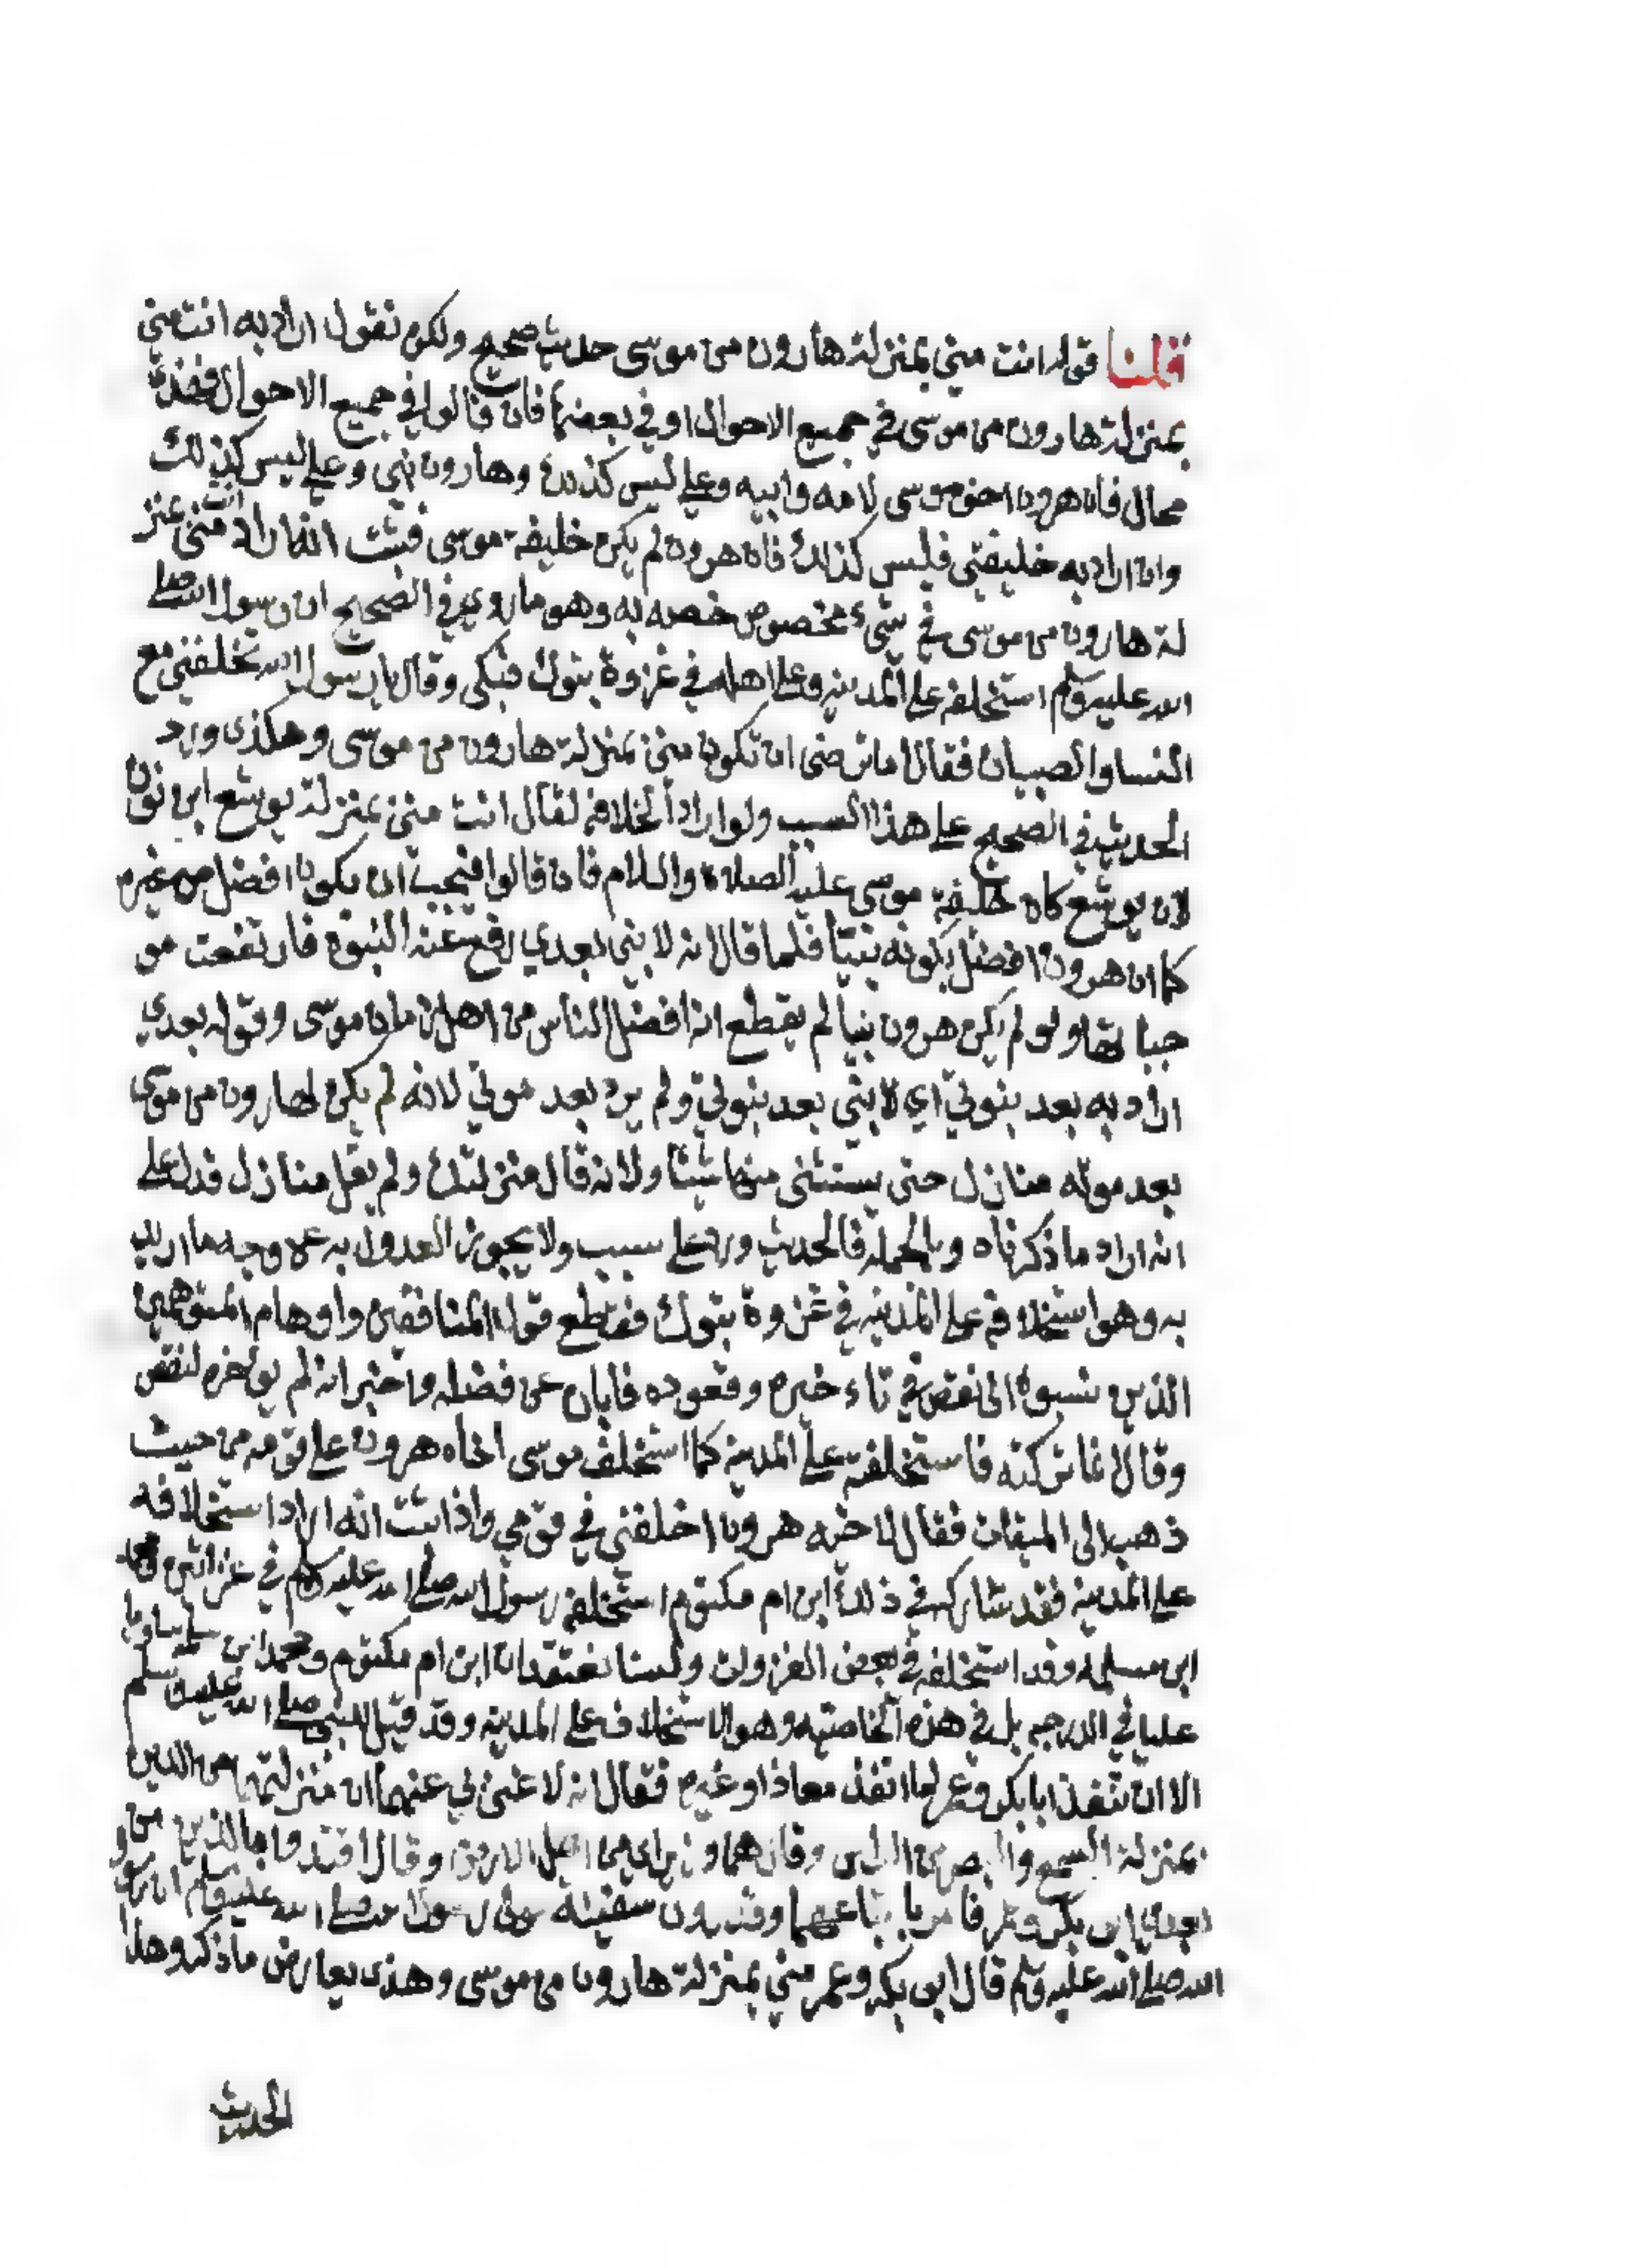 قلنا قوله انت مني بمنزلة هارون من موسى حديث صحيح ولكن نقول اراد به انت مني
بمنزلة هارون من موسى في جميع الاحوال او في بعضها فان قالوا في جميع الاحوال فهذا
محال فان هرون اخو موسى لامه وابيه وعلي ليس كذلك وهارون نبي وعلي ليس كذلك
وان اراد به خليفتي فليس كذلك فان هرون لم يكن خليفة موسى فثبت انه اراد انت مني بمنز
لة هارون من موسى في شيء مخصوص خصه به وهو ما روي في الصحيح ان رسول الله صلى
الله عليه وسلم استخلفه على المدينه وعلى اهله في غزوة بتوك فبكى وقال يا رسول الله تخلفني مع
النسا والصبيان فقال ما ترضى ان تكون مني بمنزلة هارون من موسى وهكذى ورد
الحديث في الصحيح على هذا السبب ولو اراد الخلافه لقال انت مني بمنزلة يوشع ابن نون
لان يوشع كان خليفة موسى عليه الصلاة والسلام فان قالوا فيجب ان يكون افضل من غيره
كما ان هرون افضل بكونه نبيا فلما قال انه لا نبي بعدي رفع عنه النبوة فارتفعت مو
جباتها ولو لم يكن هرون نبيا لم يقطع انه افضل الناس من اهل زمان موسى وقوله بعدي
اراد به بعد نبوتي اي لا نبي بعد نبوتي ولم يرد بعد موتي لانه لم يكن لهارون من موسى
بعد موته منازل حتى يستثنى منها شيئا ولانه قال منزلتك ولم يقل منازل فدل على
انه اراد ما ذكرناه وبالجمله فالحديث ورد على سبب ولا يجوز العدول به عن وجه ما اريد
به وهو استخلافه على المدينه في غزوة بتوك فقطع قول المنافقين واوهام المتوهمين
الذين نسبوه الى نقص في تاءخيره وقعوده فابان عن فضله واخبر انه لم يؤخره لنقص
وقال انما تركته فاستخلفته على المدينه كما استخلف موسى اخاه هرون على قومه من حيث
ذهب الى الميقات فقال لاخيه هرون اخلفني في قومي واذا ثبت انه اراد استخلافه
على المدينه فقد شاركه في ذلك ابن ام مكتوم استخلفه رسول الله صلى الله عليه وسلم في غزاتين ومحمد
ابن مسلمه وقد استخلفه في بعض الغزوات ولسنا نعتقد ان ابن ام مكتوم ومحمد ابن مسلمه ساويا
عليا في الدرجه بل في هذه الخاصيه وهو الاستخلاف على المدينه وقد قيل للنبي صلى الله عليه وسلم
الا ان تنفذ ابا بكر وعمر لما انفذ معاذا وغيره فقال انه لا غنى لي عنهما ان منزلتهما من الدين
بمنزلة السمع والبصر من الراس وقال هما وزيراي من اهل الارض وقال اقتدوا بالذين من
بعدي ابي بكر وعمر فامر باتباعهما وقد روى سفينة مولى رسول الله صلى الله عليه وسلم ان رسول
الله صلى الله عليه وسلم قال ابي بكر وعمر مني بمنزلة هارون من موسى وهذى يعارض ما ذكروه هذا
الحديث